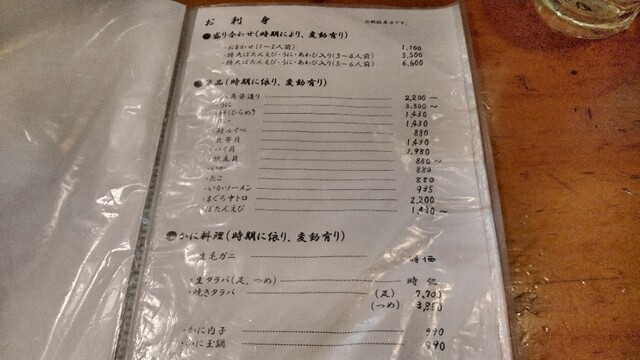 お刺身
●盛り合わせ(時期により、変動有り)
・おまかせ(1〜2人前) 1,100
・特大ぼたんえび・うに・あわび入り(3〜4人前) 5,500
・特大ぼたんえび・うに・あわび入り(5〜6人前) 6,600
品(時期に依り、変動有り)
2,200〜
うに 3,300〜
(ひらめ) 1,430
1,430
ルイベ 880
北寄貝 1,430
貝 1,980
帆立貝 880〜
いか 880
・たこ 880
・いかソーメン 935
・まぐろ中トロ 2,200
ぼたんえび 1,430〜
●かに料理(時期に依り、変動有り)
生毛ガニ 時価
・生タラバ(足、つめ) 時価
・焼きタラバ (足) 7,700
(つめ) 3,850
・かに内子 990
・かに玉鍋 990